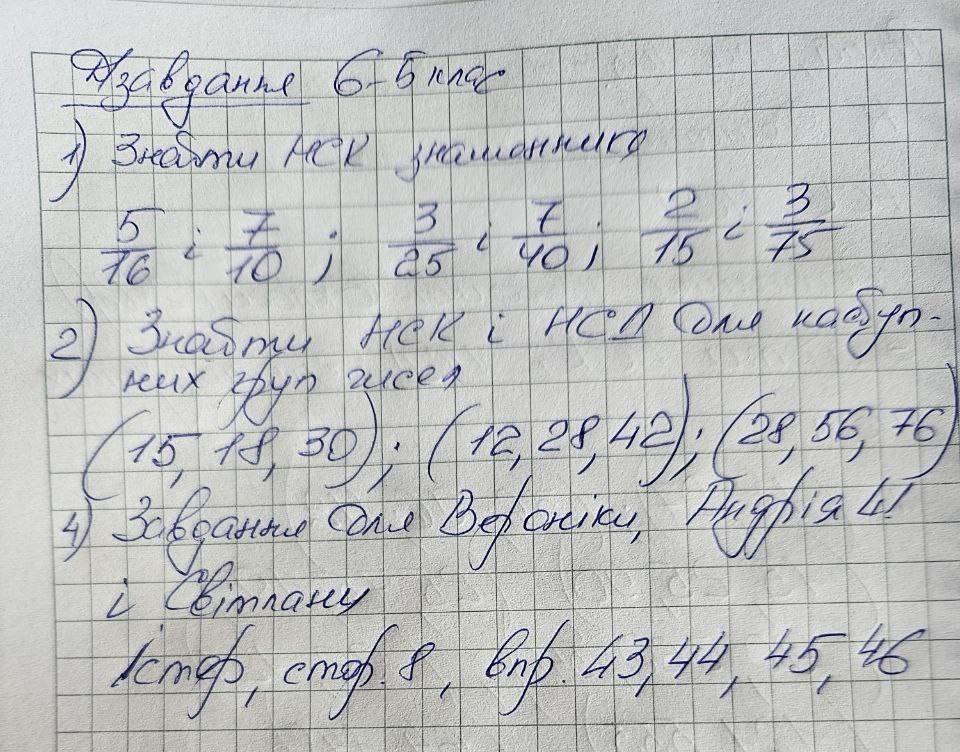 Д/завдання 6-5 клас
1) Знайти НСК знаменників
5/16 і 7/10 ; 3/25 і 7/40 ; 2/15 і 3/75
2) Знайти НСК і НСД для наступ-
них груп чисел
(15, 18, 30) ; (12, 28, 42) ; (28, 56, 76)
4) Завдання для Вероніки, Андрія Ш
і Світлану
Істер, стор. 8, впр. 43, 44, 45, 46